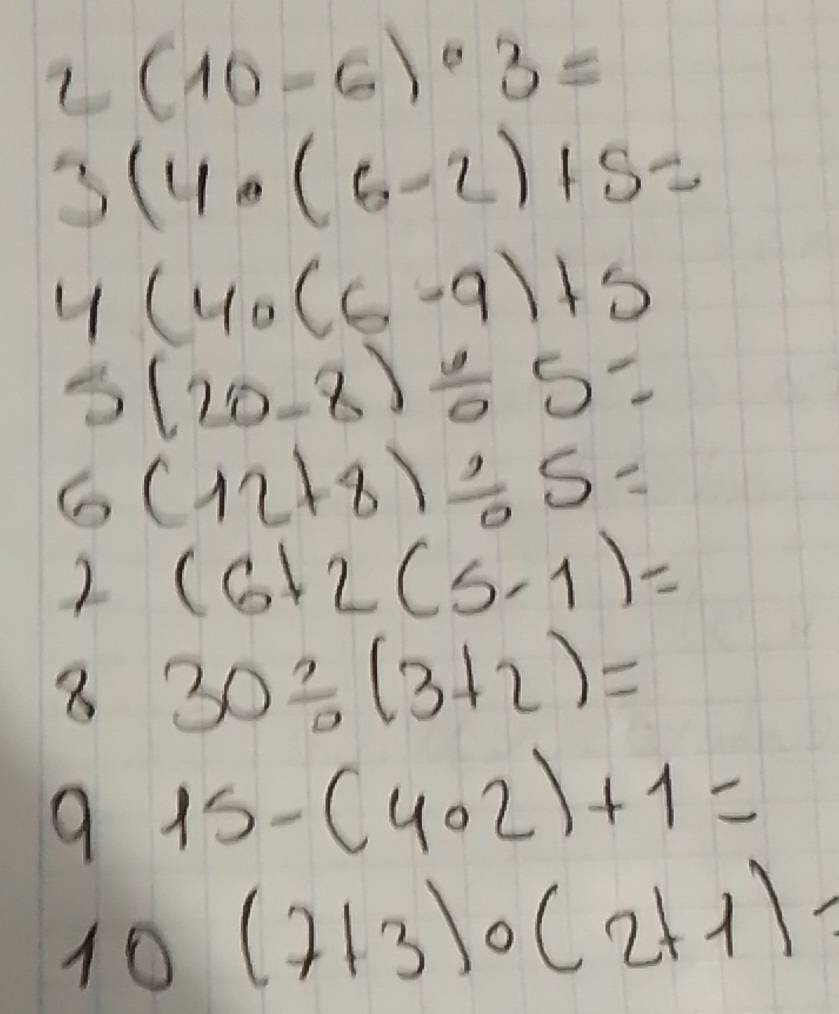 2 (10-6)•3=
3 (4•(6-2)+5=
4 (4•(6-9)+5
5 (20-8)÷5=
6 (12+8)÷5=
7 (6+2(5-1)=
8 30÷(3+2)=
9 15-(4•2)+1=
10 (7+3)•(2+1)=